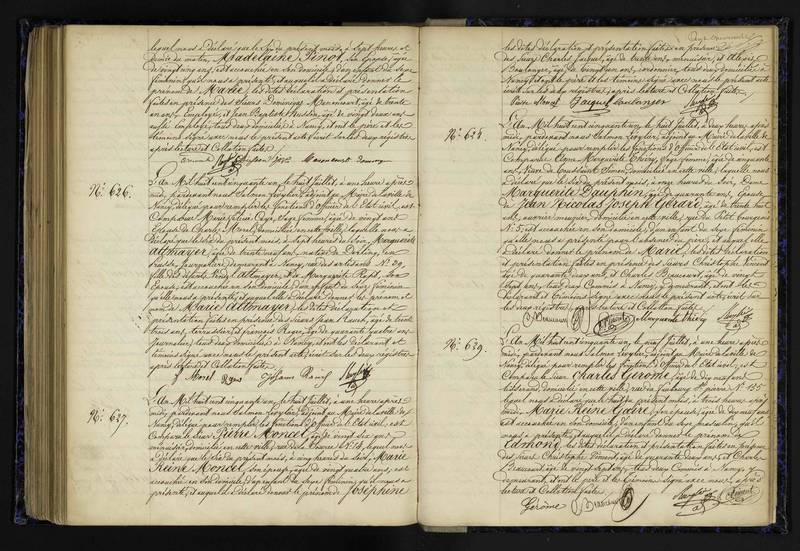 lequel nous a déclaré que le Six du présent mois, à Sept heures et
demie du matin, Madelaine Pinot, Son Epouse, âgée
de vingt cinq ans, est accouchée en Son domicile, d'un enfant du Sexe
féminin qu'il nous a présenté, et auquel il a déclaré donner le
prénom de Marie, les dites déclaration et présentation
faites en présence des Sieurs Dominique Marencourt, âgé de trente
ans, Employé, et Jean Baptiste Husson, âgé de vingt deux ans,
Employé, tous deux domiciliés à Nancy, et ont le père et les
témoins signé avec nous le présent acte, écrit sur les deux registres
après lecture et Collation faites.
N.° 626.
L'An Mil huit cent cinquante un, le huit Juillet, à une heure après
midi, pardevant nous Salmon Levylier, adjoint au Maire de la ville de
Nancy, délégué pour remplir les fonctions d'Officier de l'Etat civil, est
Comparue Marie Félicie Caye, Sage femme, âgée de vingt ans
Epouse de Charles Morel, domiciliée en cette ville, laquelle nous a
déclaré que le Six du présent mois, à Sept heures du Soir, Marguerite
Altmayer, âgée de trente neuf ans, native de
journalière, demeurant à Nancy, rue des artisans N.° 20,
fille des défunts Pierre Altmayer, et de Marguerite Son
Epouse, est accouchée en Son domicile, d'un enfant du Sexe féminin
qu'elle nous a présenté, et auquel elle a déclaré donner les prénom et
nom de Marie Altmayer, les dites déclaration et
présentation faites en présence des Sieurs Jean Rauch, âgé de trente
trois ans, terrassier, et François âgé de quarante quatre ans,
journalier, tous deux domiciliés à Nancy, et ont les déclarant et
témoins signé avec nous le présent acte, écrit sur les deux registres
après lecture et Collation faites.
f. Morel Johann Rauch
N.° 627.
L'An Mil huit cent cinquante un, le huit Juillet, à une heure après
midi, pardevant nous Salmon Levylier, adjoint au Maire de la ville de
Nancy, délégué pour remplir les fonctions d'Officier de l'Etat civil, est
Comparu le Sieur Pierre Mondel, âgé de vingt Six ans,
menuisier, domicilié en cette ville, rue lequel nous
a déclaré que le Six du présent mois, à cinq heures du Soir, Marie
Reine Mondel, Son épouse, âgée de vingt quatre ans, est
accouchée en Son domicile, d'un enfant du Sexe féminin, qu'il nous a
présenté, et auquel il a déclaré donner le prénom de Joséphine
les dites déclaration et présentation faites en présence
des Sieurs Charles Jaquel, âgé de trente ans, menuisier, et Alexis
Boulanger, âgé de vingt un ans, tous deux domiciliés à
Nancy, et ont le père et les témoins signé avec nous le présent acte
écrit sur les deux registres, après lecture et Collation faites.
Jaquel boulanger
N.° 628.
L'An Mil huit cent cinquante un, le huit Juillet, à deux heures après
midi, pardevant nous Salmon Levylier, adjoint au Maire de la ville de
Nancy, délégué pour remplir les fonctions d'Officier de l'Etat civil, est
Comparue Dame Marguerite Thiéry, Sage femme, âgée de cinquante
ans, Veuve de domiciliée en cette ville, laquelle nous
a déclaré que le Six du présent mois, à onze heures du Soir, Dame
Marguerite Dauphin, âgée de quarante ans, Epouse
de Jean Nicolas Joseph Gérard, âgé de trente huit
ans, ouvrier menuisier, domicilié en cette ville, rue du Petit bourgeois
N.° 5, est accouchée en Son domicile, d'un enfant du Sexe féminin
qu'elle nous a présenté pour l'absence du père, et auquel elle
a déclaré donner le prénom de Marie, les dites déclaration
et présentation faites en présence des Sieurs Christophe Clément
âgé de quarante deux ans, et Charles Beaucourt, âgé de vingt
Sept ans, tous deux Commis à Nancy, y demeurant, et ont les
déclarant et témoins signé avec nous le présent acte, écrit sur
les deux registres, après lecture et Collation faites.
Marguerite Thiéry
N.° 629.
L'An Mil huit cent cinquante un, le neuf Juillet, à une heure après
midi, pardevant nous Salmon Levylier, adjoint au Maire de la ville de
Nancy, délégué pour remplir les fonctions d'Officier de l'Etat civil, est
Comparu le Sieur Charles Gérôme, âgé de dix neuf ans,
tisserand, domicilié en cette ville, rue du faubourg St. Pierre N.° 135
lequel nous a déclaré que le huit du présent mois, à trois heures après
midi, Marie Reine Gaire, Son épouse, âgée de dix neuf ans
est accouchée en Son domicile, d'un enfant du Sexe masculin, qu'il
nous a présenté, et auquel il a déclaré donner le prénom de
Edmond, les dites déclaration et présentation faites en présence
des Sieurs Christophe Clément, âgé de quarante deux ans, et Charles
Beaucourt, âgé de vingt Sept ans, tous deux Commis à Nancy, y
demeurant, et ont le père et les témoins signé avec nous, après
lecture et Collation faites.
Gérôme